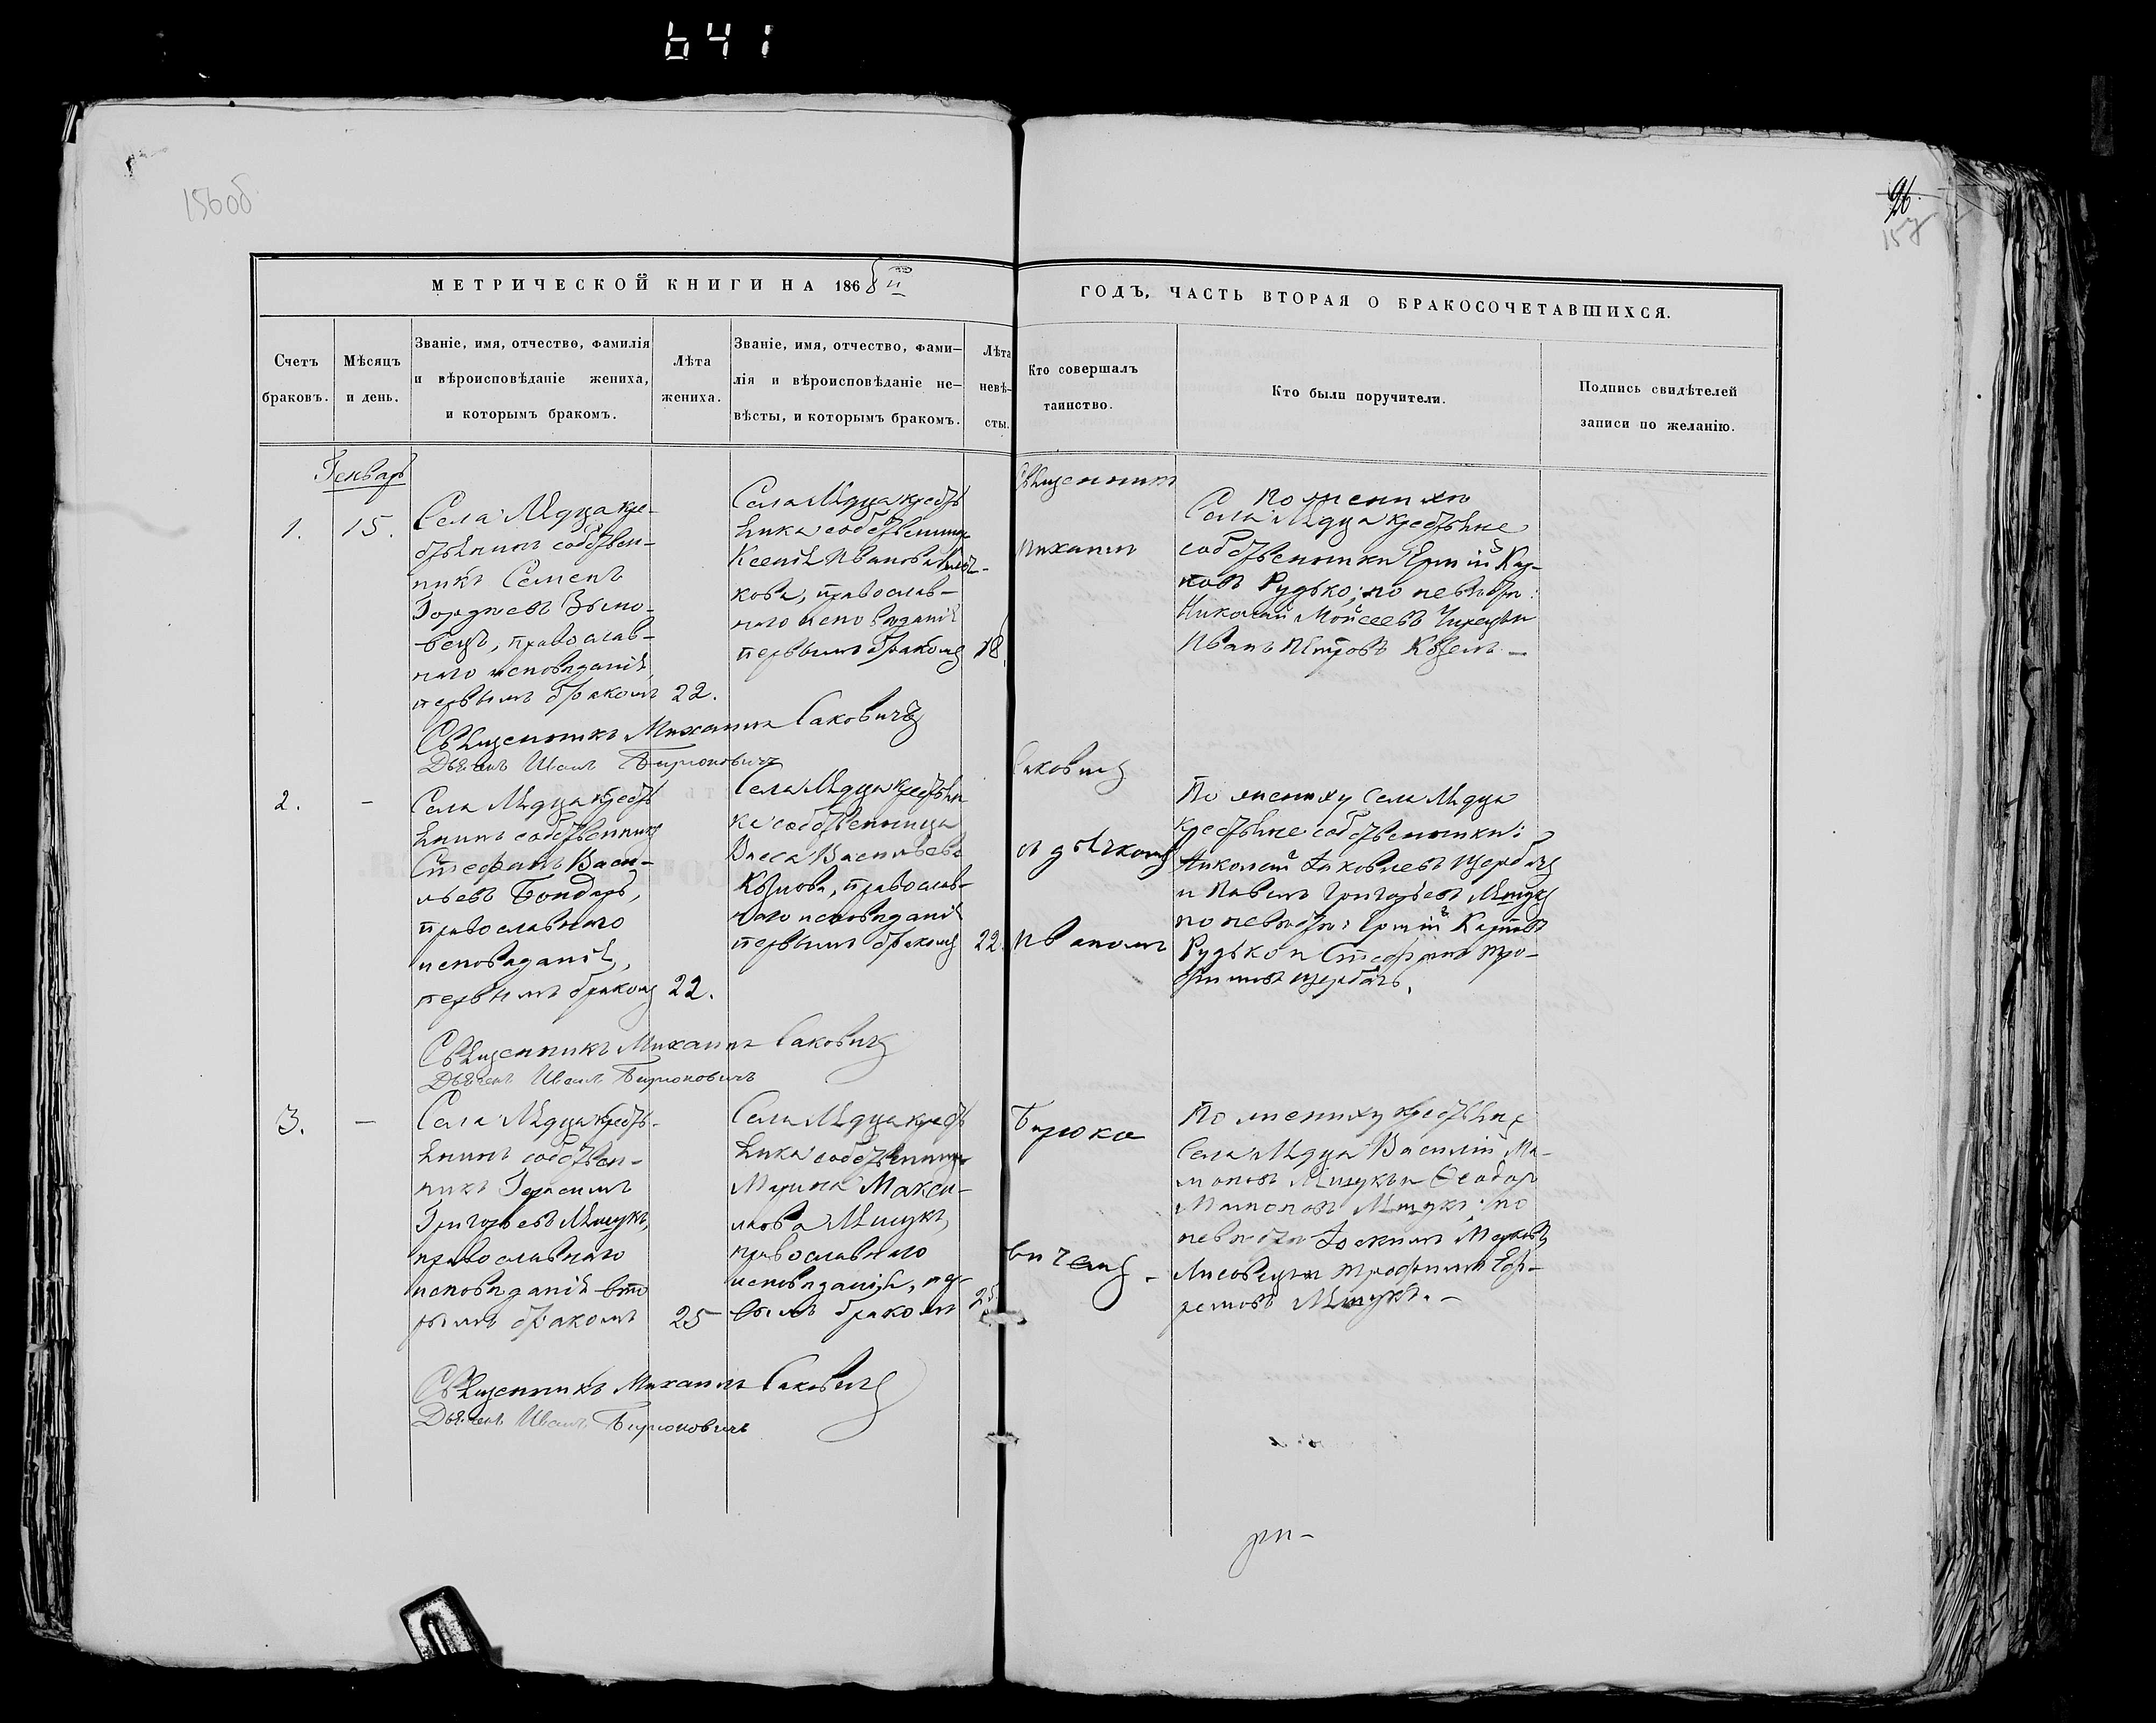 641
156об
96.
157
МЕТРИЧЕСКОЙ КНИГИ НА 1868й
ГОДЪ, ЧАСТЬ ВТОРАЯ О БРАКОСОЧЕТАВШИХСЯ.
Счетъ
браковъ.
Мѣсяцъ
и день.
Званіе, имя, отчество, фамилія
и вѣроисповѣданіе жениха,
и которымъ бракомъ.
Лѣта
жениха.
Званіе, имя, отчество, фами-
лія и вѣроисповѣданіе не-
вѣсты, и которымъ бракомъ.
Лѣта
невѣ-
сты.
Кто совершалъ
таинство.
Кто были поручители.
Подпись свидѣтелей
записи по желанію.
Генварь
1.
15.
Села Мѣдца кре-
стьянинъ собствен-
никъ Семенъ
бецъ, православ-
наго исповѣданія
первымъ бракомъ
22.
Села Мѣдца кресть
янка собственница
Ксенія Иванова
кова, православ-
наго исповѣданія
первымъ бракомъ
18
Священникъ
Михаилъ
По жениху
Села Мѣдца крестьяне
собственники Ермій Кар-
повъ Рудько; по невѣстѣ:
Николай Мойсеевъ
Иванъ Петровъ
Священникъ Михаилъ Саковичъ
Дьячекъ Иванъ Бирюковичъ
2.
-
Села Мѣдца кресть
янинъ собственникъ
Стефанъ Васи-
льевъ Бондарь,
православнаго
исповѣданія,
первымъ бракомъ
22.
Села Мѣдца крестьян
ка собственница
Васса Васильева
православ-
наго исповѣданія
первымъ бракомъ
22.
Саковичъ
съ дьячкомъ
Иваномъ
По жениху Села Мѣдца
крестьяне собственники:
Николай Яковлевъ Щербачъ
и Павелъ Григорьевъ Мѣшукъ
по невѣстѣ: Ермій Карповъ
Рудько и Стефанъ Тро-
фимовъ Щербачъ.
Священникъ Михаилъ Саковичъ
Дьячекъ Иванъ Бирюковичъ
3.
-
Села Мѣдца кресть-
янинъ собствен-
никъ Герасимъ
Григорьевъ Мѣшукъ,
православнаго
исповѣданія вто
рымъ бракомъ
25
Села Мѣдца кресть
янка собственница
Марина Макси-
мова Мѣшукъ,
православнаго
исповѣданія, пер-
вымъ бракомъ
Бирюко
вичемъ -
По жениху крестьяне
Села Мѣдца Василій Ма-
Мѣшукъ и Ѳеодоръ
Мѣшукъ; по
невѣстѣ Іоакимъ Марковъ
Лисовецъ и Трофимъ Еф-
ремовъ Мѣшукъ. -
Священникъ Михаилъ Саковичъ
Дьячекъ Иванъ Бирюковичъ